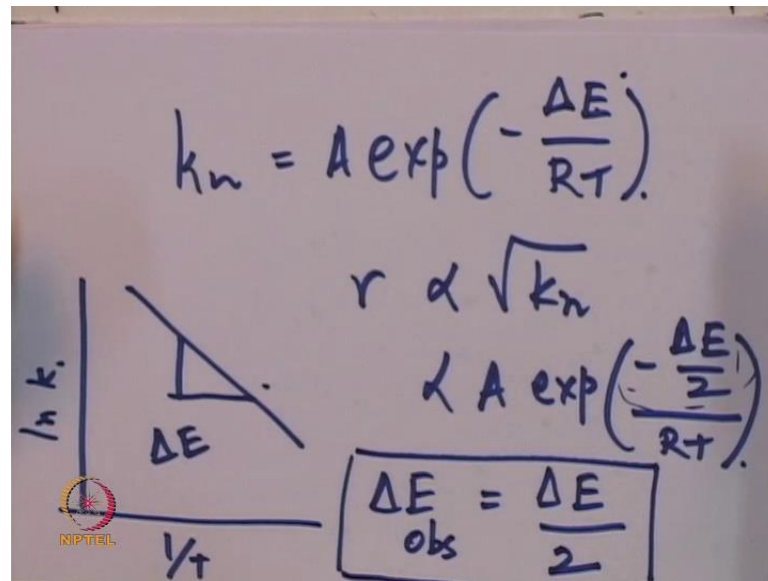 kₙ = A exp(- ΔE/RT).
r ∝ √kₙ
∝ A exp(- ΔE/2 / RT).
ln k.
ΔE
1/T
ΔE obs = ΔE/2
NPTEL